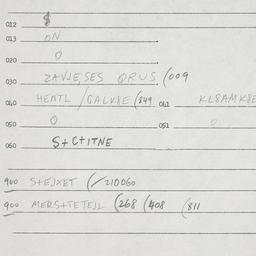 012 $
013 nN
020 0
030 ZAVJE,SES QRUS (009
040 HENTL/GALK8E (849 041 KL8AMK8E
050 0 051 0
060 S+C+ITNE
900 S+EJXET (/210060
900 MERS+TETEJL (268 (408 (811